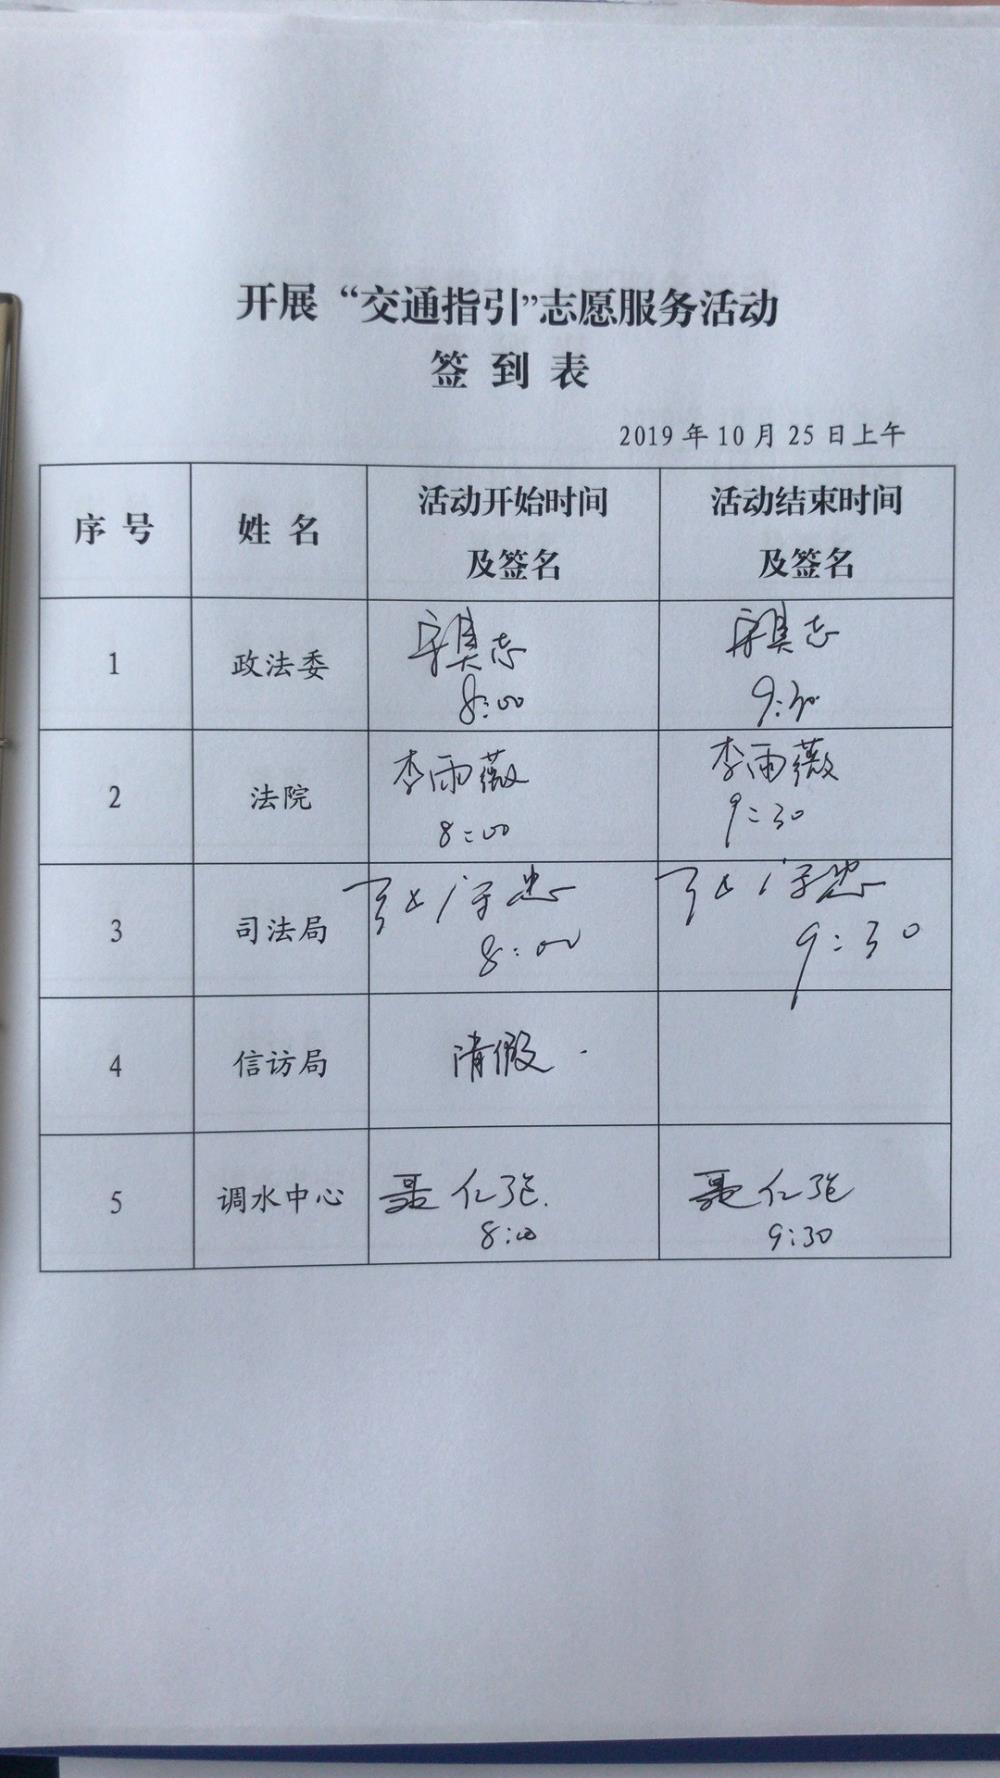 开展“交通指引”志愿服务活动
签 到 表
2019 年 10 月 25 日上午
序 号 姓 名 活动开始时间 及签名 活动结束时间 及签名
1 政法委 8:00 9:30
2 法院 李雨薇 8:00 李雨薇 9:30
3 司法局 8:00 9:30
4 信访局 请假
5 调水中心 8:00 9:30